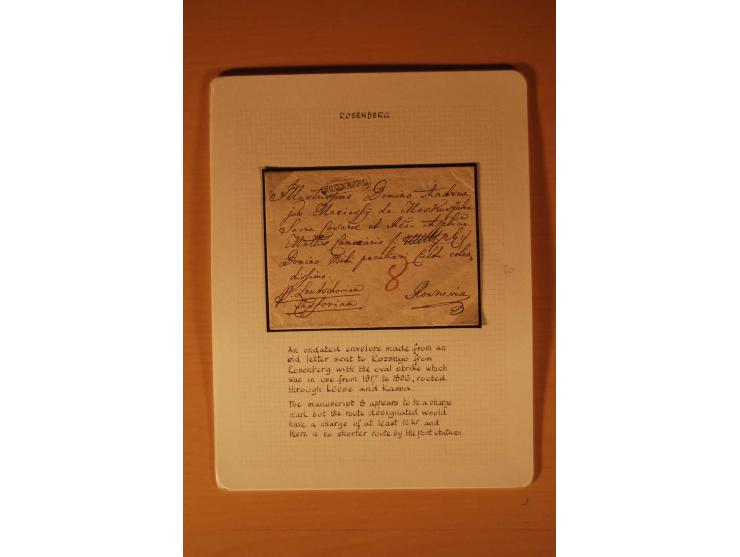 ROSENBERG
ROSENBERG
Illustrissimo Domino Andreae
jun Mariassÿ de
Sacrae Caesareae et
Domino Mihi peculiari Cultu colen
dissimo.
8
p. Leutschoviam
Cassoviam
Rosnavia
An undated envelope made from an
old letter sent to Rozsnyo from
Rosenberg with the oval strike which
was in use from 1817 to 18, routed
through Löcse and Kassa.
The manuscript 8 appears to be a charge
mark but the route designated would
have a charge of at least 12 kr and
there is no shorter route by the post stations